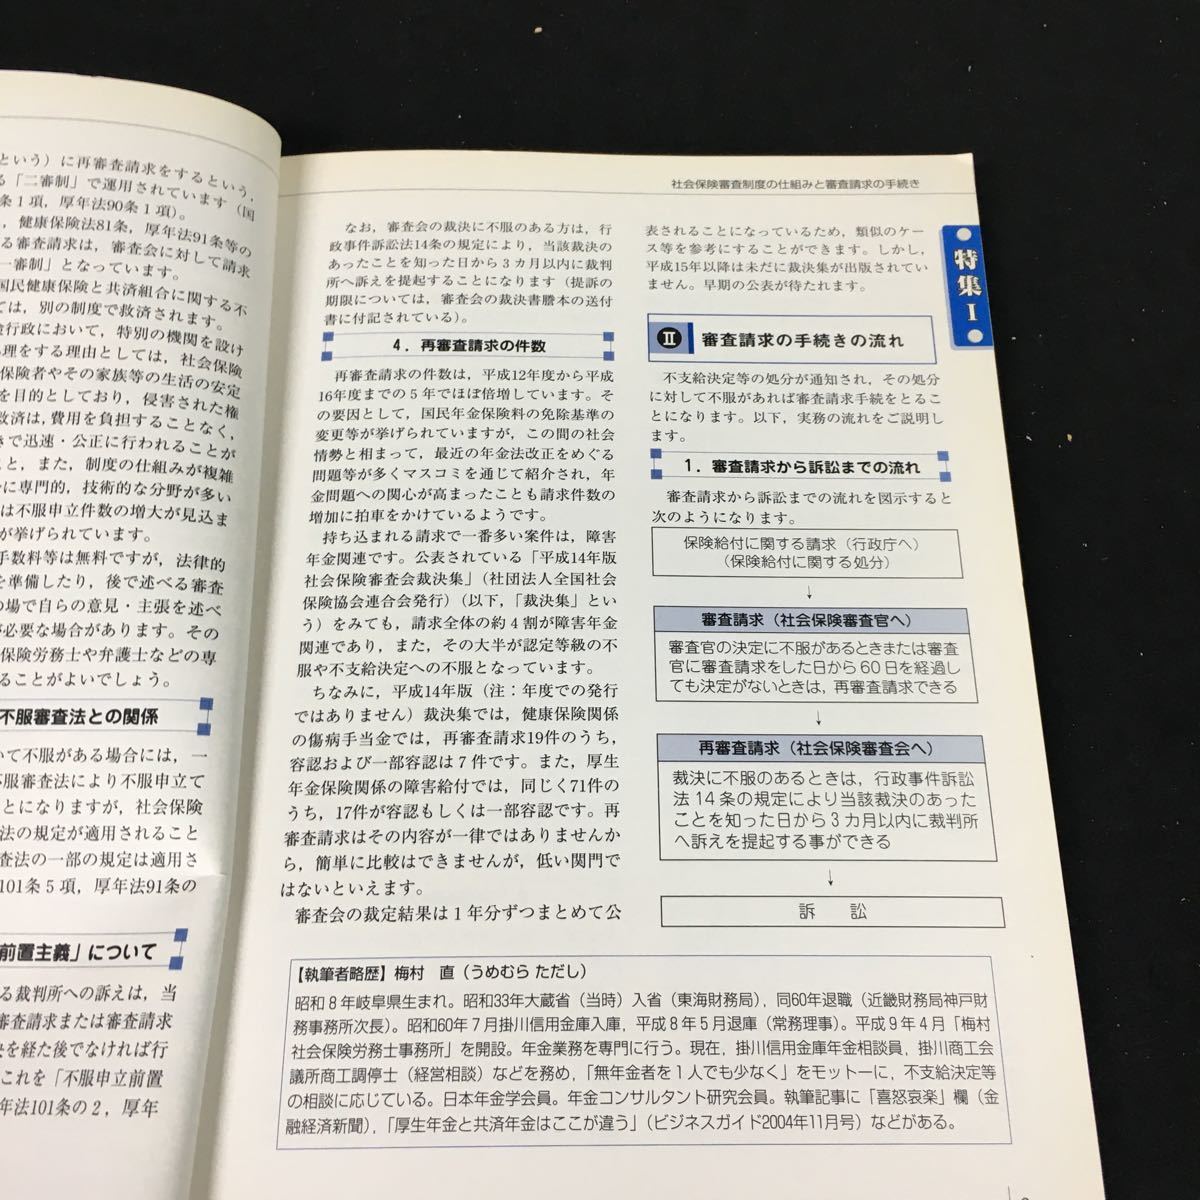 という）に再審査請求をするという，
る「二審制」で運用されています（国
条１項，厚年法90条１項）。
，健康保険法81条，厚年法91条等の
る審査請求は，審査会に対して請求
一審制」となっています。
国民健康保険と共済組合に関する不
ては，別の制度で救済されます。
険行政において，特別の機関を設け
処理をする理由としては，社会保険
保険者やその家族等の生活の安定
を目的としており，侵害された権
救済は，費用を負担することなく，
きで迅速・公正に行われることが
こと，また，制度の仕組みが複雑
に専門的，技術的な分野が多い
は不服申立件数の増大が見込ま
が挙げられています。
手数料等は無料ですが，法律的
を準備したり，後で述べる審査
の場で自らの意見・主張を述べ
が必要な場合があります。その
保険労務士や弁護士などの専
ることがよいでしょう。
不服審査法との関係
いて不服がある場合には，一
不服審査法により不服申立て
とになりますが，社会保険
法の規定が適用されること
査法の一部の規定は適用さ
101条５項，厚年法91条の
前置主義」について
る裁判所への訴えは，当
審査請求または審査請求
決を経た後でなければ行
これを「不服申立前置
年法101条の２，厚年
社会保険審査制度の仕組みと審査請求の手続き
なお，審査会の裁決に不服のある方は，行
政事件訴訟法14条の規定により，当該裁決の
あったことを知った日から３カ月以内に裁判
所へ訴えを提起することになります（提訴の
期限については，審査会の裁決書謄本の送付
書に付記されている）。
４．再審査請求の件数
再審査請求の件数は，平成12年度から平成
16年度までの５年でほぼ倍増しています。そ
の要因として，国民年金保険料の免除基準の
変更等が挙げられていますが，この間の社会
情勢と相まって，最近の年金法改正をめぐる
問題等が多くマスコミを通じて紹介され，年
金問題への関心が高まったことも請求件数の
増加に拍車をかけているようです。
持ち込まれる請求で一番多い案件は，障害
年金関連です。公表されている「平成14年版
社会保険審査会裁決集」（社団法人全国社会
保険協会連合会発行）（以下，「裁決集」とい
う）をみても，請求全体の約４割が障害年金
関連であり，また，その大半が認定等級の不
服や不支給決定への不服となっています。
ちなみに，平成14年版（注：年度での発行
ではありません）裁決集では，健康保険関係
の傷病手当金では，再審査請求19件のうち，
容認および一部容認は７件です。また，厚生
年金保険関係の障害給付では，同じく71件の
うち，17件が容認もしくは一部容認です。再
審査請求はその内容が一律ではありませんか
ら，簡単に比較はできませんが，低い関門で
はないといえます。
審査会の裁定結果は１年分ずつまとめて公
表されることになっているため，類似のケー
ス等を参考にすることができます。しかし，
平成15年以降は未だに裁決集が出版されてい
ません。早期の公表が待たれます。
Ⅱ 審査請求の手続きの流れ
不支給決定等の処分が通知され，その処分
に対して不服があれば審査請求手続をとるこ
とになります。以下，実務の流れをご説明し
ます。
１．審査請求から訴訟までの流れ
審査請求から訴訟までの流れを図示すると
次のようになります。
保険給付に関する請求（行政庁へ）
（保険給付に関する処分）
↓
審査請求（社会保険審査官へ）
審査官の決定に不服があるときまたは審査
官に審査請求をした日から60日を経過し
ても決定がないときは，再審査請求できる
↓
再審査請求（社会保険審査会へ）
裁決に不服のあるときは，行政事件訴訟
法14条の規定により当該裁決のあった
ことを知った日から3カ月以内に裁判所
へ訴えを提起する事ができる
↓
訴　訟
特集Ⅰ
【執筆者略歴】梅村　直（うめむら ただし）
昭和８年岐阜県生まれ。昭和33年大蔵省（当時）入省（東海財務局），同60年退職（近畿財務局神戸財
務事務所次長）。昭和60年７月掛川信用金庫入庫，平成８年５月退庫（常務理事）。平成９年４月「梅村
社会保険労務士事務所」を開設。年金業務を専門に行う。現在，掛川信用金庫年金相談員，掛川商工会
議所商工調停士（経営相談）などを務め，「無年金者を１人でも少なく」をモットーに，不支給決定等
の相談に応じている。日本年金学会員。年金コンサルタント研究会員。執筆記事に「喜怒哀楽」欄（金
融経済新聞），「厚生年金と共済年金はここが違う」（ビジネスガイド2004年11月号）などがある。